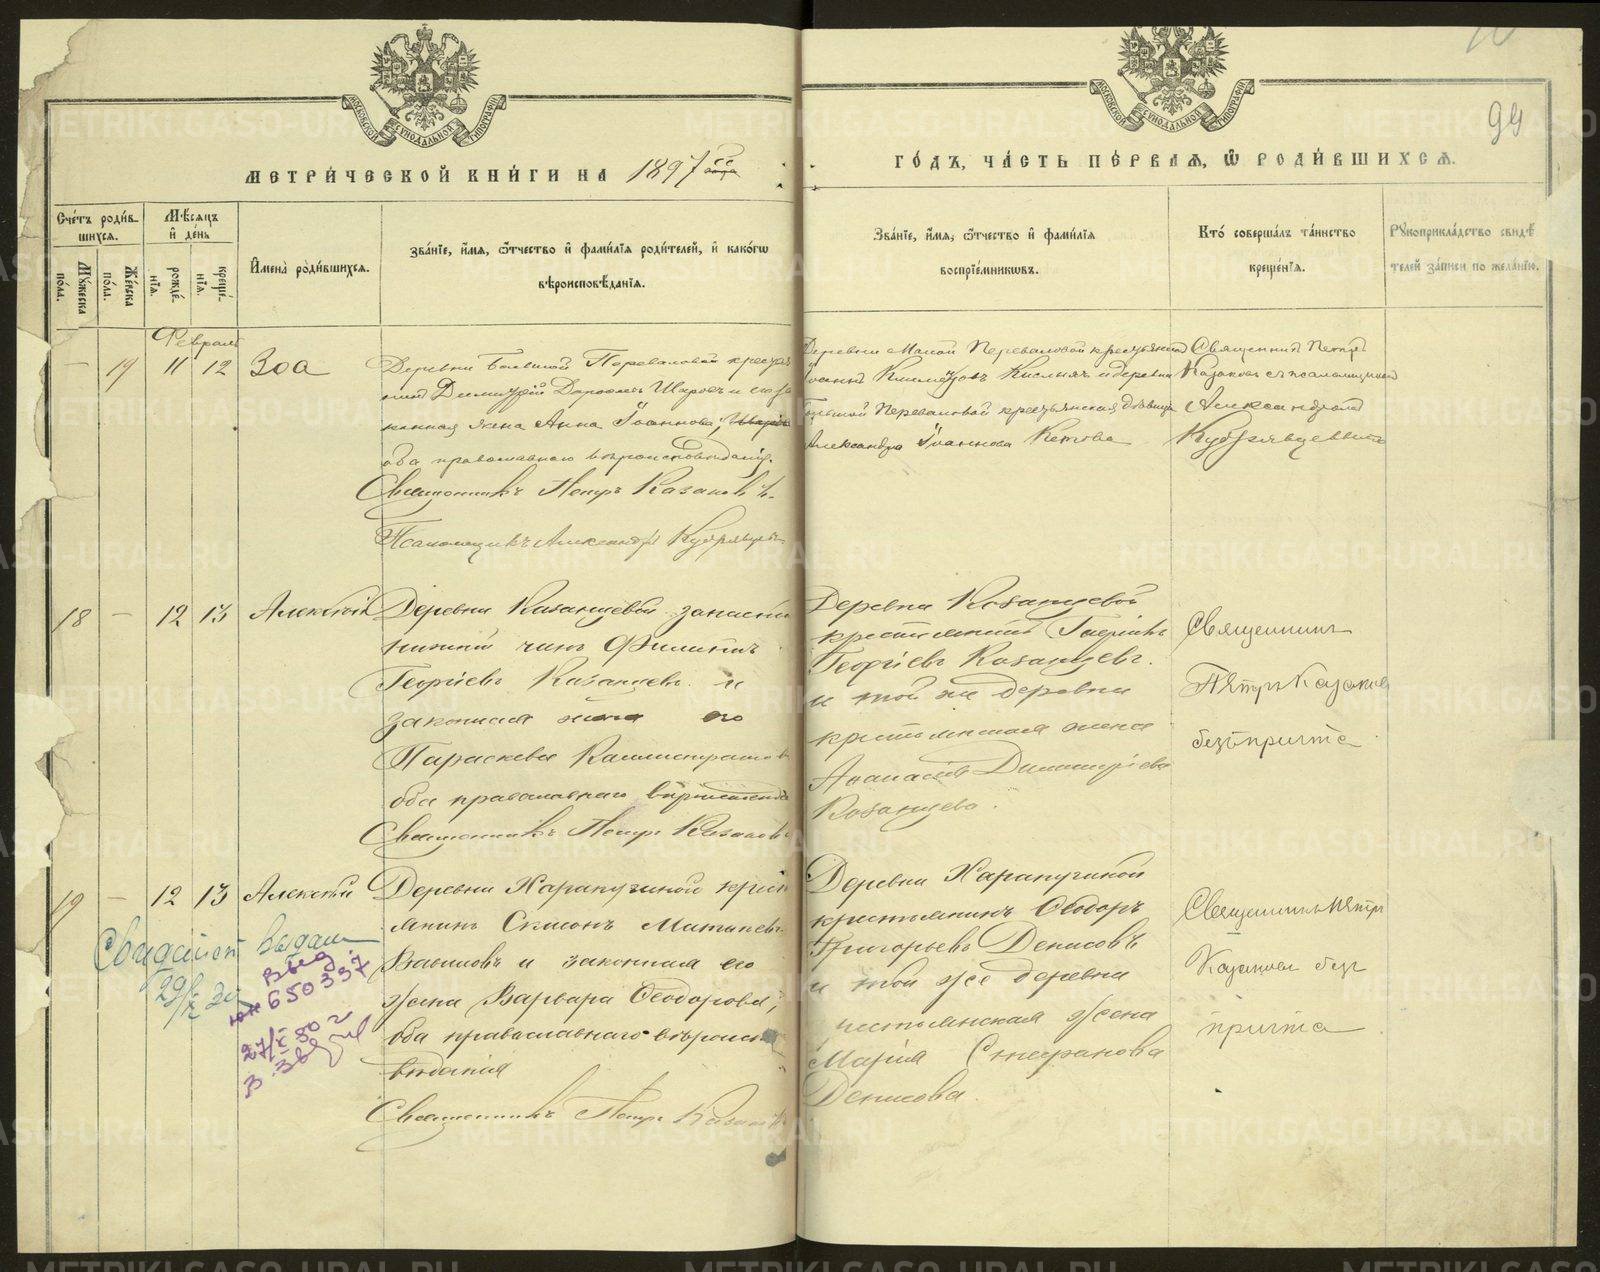 МОСКОВСКОЙ СѴНОДАЛЬНОЙ ТИПОГРАФІИ
МОСКОВСКОЙ СѴНОДАЛЬНОЙ ТИПОГРАФІИ
94
МЕТРИ́ЧЕСКОЙ КНИ́ГИ НА 1897
ГО́ДЪ, ЧА́СТЬ ПЕ́РВАЯ, Ѿ РОДИ́ВШИХСЯ.
Сче́тъ роди́в-
шихся.
Му́жеска по́ла.
Же́нска по́ла.
Мѣ́сяцъ
и҆ де́нь
рожде́-
нїя.
креще́-
нїя.
И҆мена̀ роди́вшихся.
Зва́нїе, и҆́мя, ѻ҆́тчество и҆ фами́лїя роди́телей, и҆ како́гѡ
вѣроисповѣ́данїя.
Зва́нїе, и҆́мя, ѻ҆́тчество и҆ фами́лїя
воспрїе́мникѡвъ.
Кто̀ соверша́лъ та́инство
креще́нїя.
Рꙋкоприкла́дство свидѣ́
телей за́писи по жела́нїю.
Февраль
— 19 11 12 Зоа
Деревни Большой Переваловой крестья
нинъ Димитрій Дороѳеевъ Шаровъ и его за
конная жена Анна Іоаннова,
оба православнаго вѣроисповѣданія.
Священникъ Петръ Казаковъ.
Псаломщикъ Александръ Кудрявцевъ
Деревни Малой Переваловой крестьянинъ
Іоаннъ Кислыхъ и деревни
Большой Переваловой крестьянская дѣвица
Александра Іоаннова Кетова
Священникъ Петръ
Казаковъ съ псаломщикомъ
Александромъ
Кудрявцевымъ
18 — 12 13 Алексѣй
Деревни Казанцевой запасный
нижній чинъ Филиппъ
Георгіевъ Казанцевъ и
законная жена его
Параскева Каллистратова
оба православнаго вѣроисповѣд
Священникъ Петръ Казаковъ
Деревни Казанцевой
крестьянинъ Гавріилъ
Георгіевъ Казанцевъ.
и той же деревни
крестьянская жена
Анастасія Димитріева
Казанцева.
Священникъ
Петръ Казаковъ
безъ причта
19 — 12 13 Алексѣй
Деревни Харапугиной крест
янинъ Симеонъ
Вавиловъ и законная его
жена Варвара Ѳеодорова,
оба православнаго вѣроиспо
вѣданія
Священникъ Петръ Казаковъ
Деревни Харапугиной
крестьянинъ Ѳеодоръ
Григорьевъ Денисовъ
и той же деревни
крестьянская жена
Марія Стефанова
Денисова.
Священникъ Петръ
Казаковъ безъ
причта
Свидѣтел выдан
29/X 30
выд
650337
27/X 50 г
METRIKI.GASO-URAL.RU